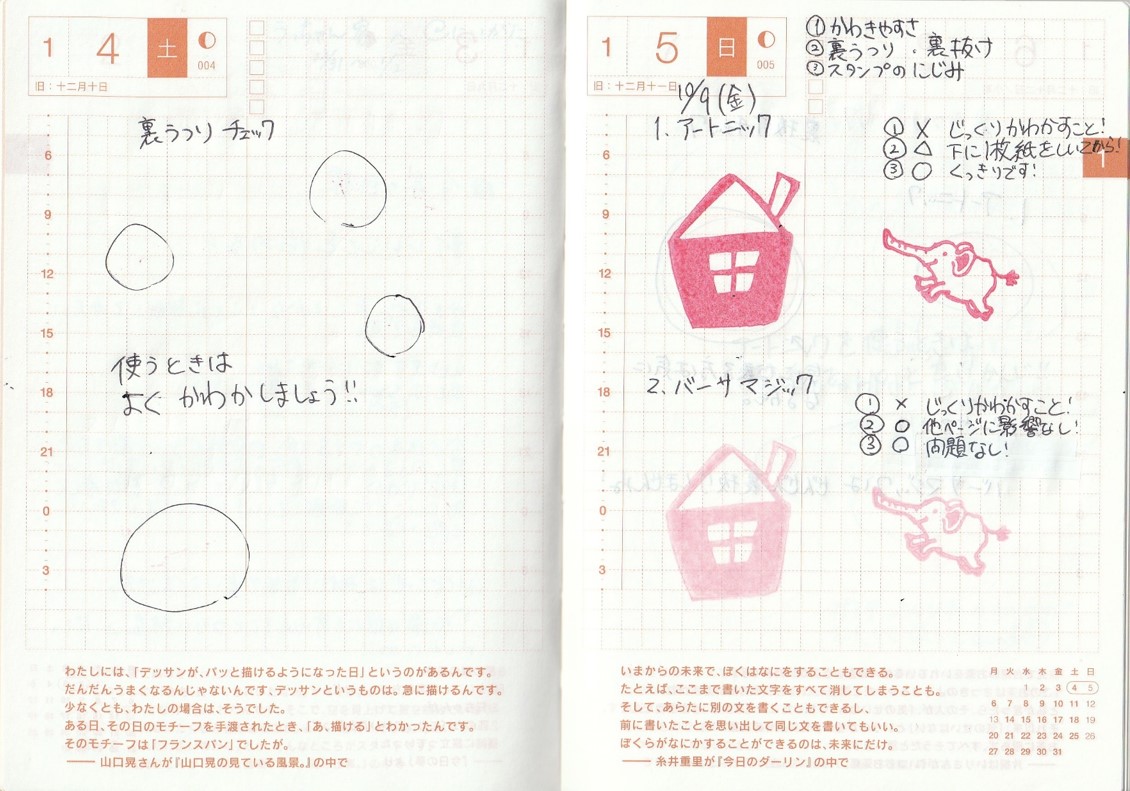 1 4 土
004
旧：十二月十日
裏うつり チェック
6
9
12
15
使うときは
よく かわかしましょう!!
18
21
0
3
わたしには、「デッサンが、パッと描けるようになった日」というのがあるんです。
だんだんうまくなるんじゃないんです、デッサンというものは。急に描けるんです。
少なくとも、わたしの場合は、そうでした。
ある日、その日のモチーフを手渡されたとき、「あ、描ける」とわかったんです。
そのモチーフは「フランスパン」でしたが。
—— 山口晃さんが『山口晃の見ている風景。』の中で
1 5 日
005
旧：十二月十一日
①かわきやすさ
②裏うつり・裏抜け
③スタンプのにじみ
10/9(金)
1. アートニック
① × じっくりかわかすこと!
② △ 下に1枚紙をしいてから!
③ ○ くっきりです!
1
6
9
12
15
2. バーサマジック
① × じっくりかわかすこと!
② ○ 他ページに影響なし!
③ ○ 問題なし!
18
21
0
3
いまからの未来で、ぼくはなにをすることもできる。
たとえば、ここまで書いた文字をすべて消してしまうことも。
そして、あらたに別の文を書くこともできるし、
前に書いたことを思い出して同じ文を書いてもいい。
ぼくらがなにかすることができるのは、未来にだけ。
—— 糸井重里が『今日のダーリン』の中で
月 火 水 木 金 土 日
1 2 3 4 5
6 7 8 9 10 11 12
13 14 15 16 17 18 19
20 21 22 23 24 25 26
27 28 29 30 31